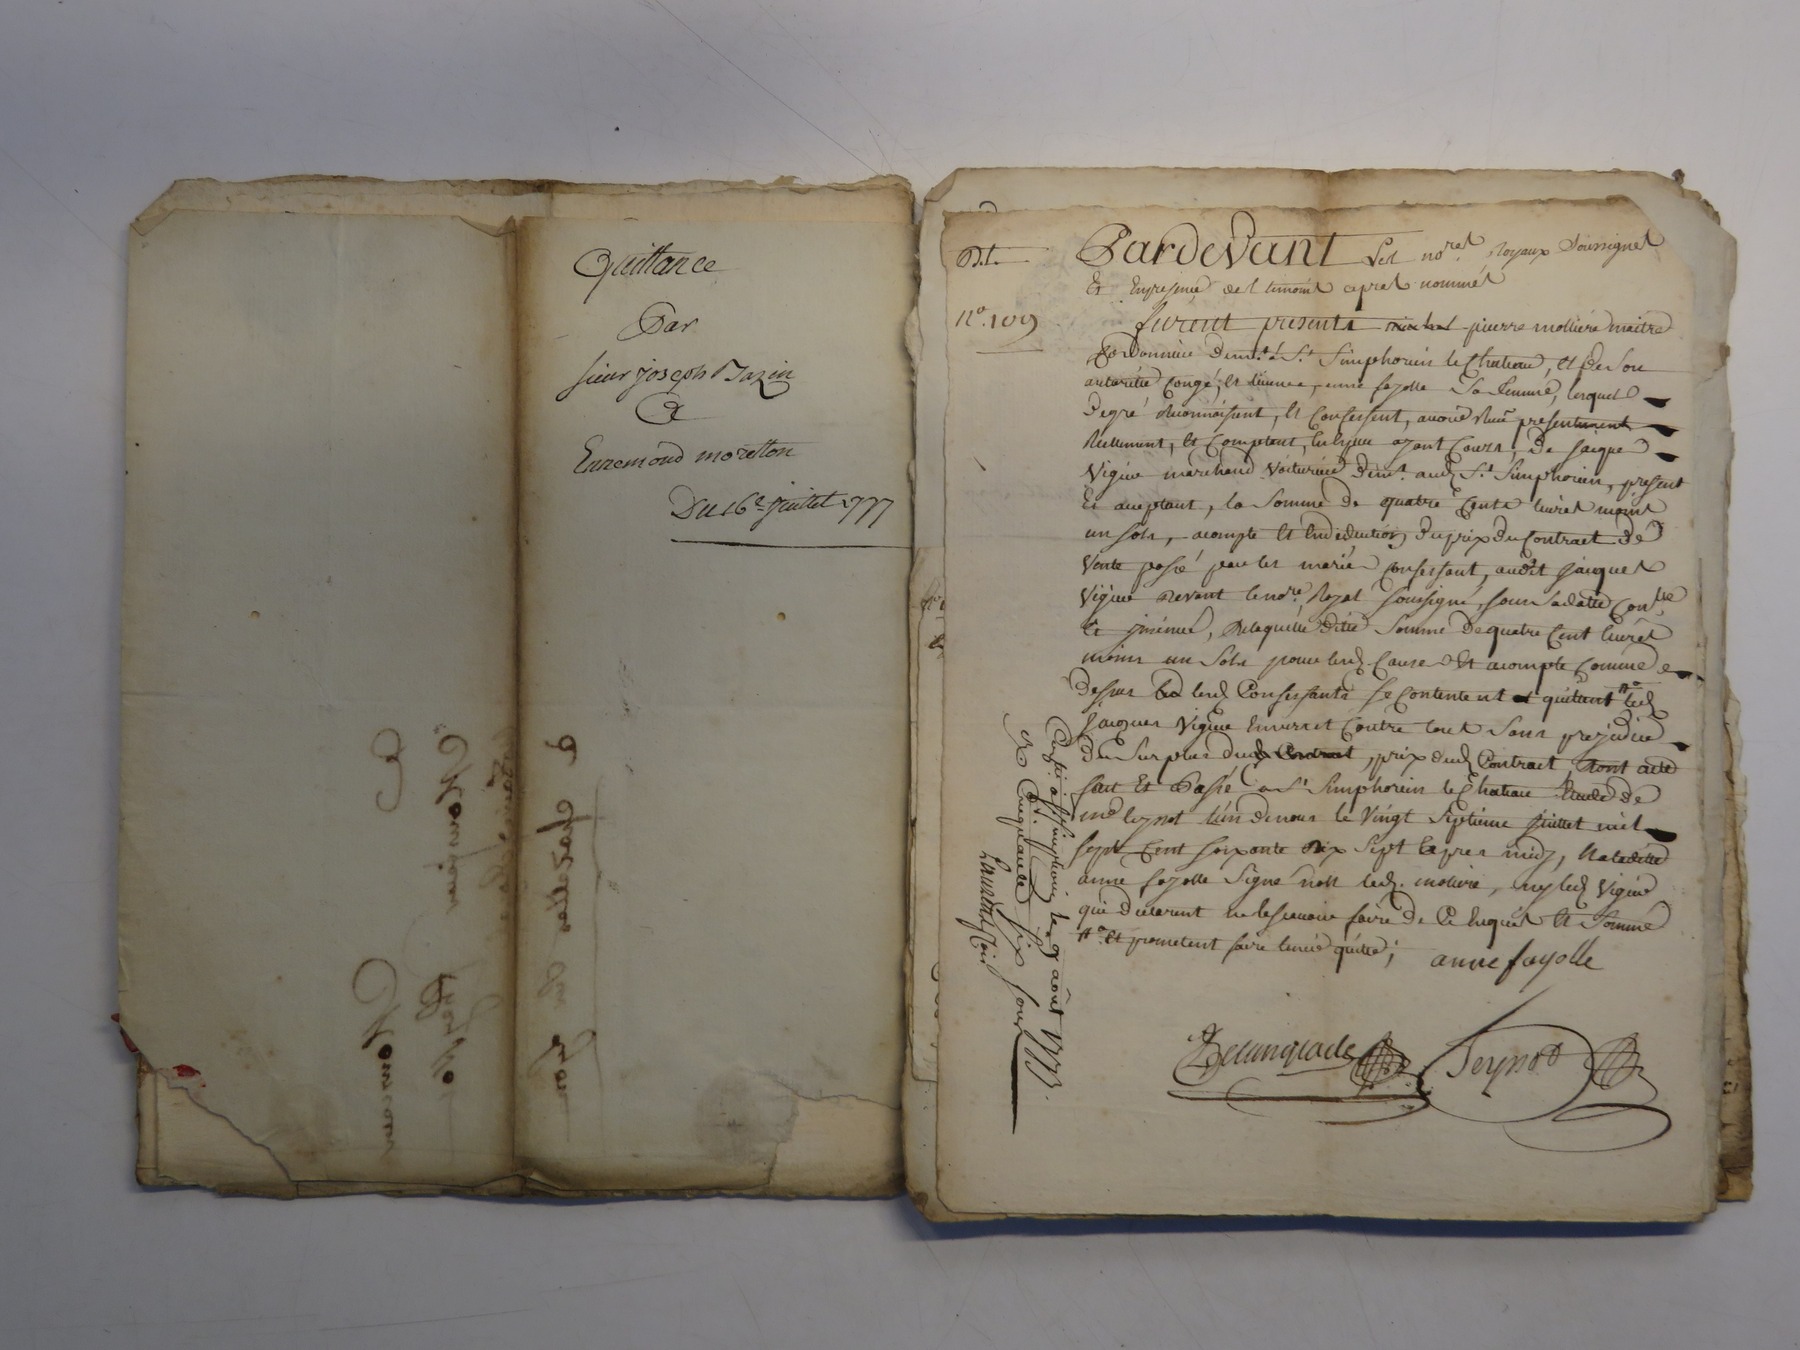 Quittance
Par
sieur joseph Bazin
A
Ennemond moretton
Du 16e juillet 1777
D.t.
n°. 109
Pardevant Les no.res Royaux Soussignés
Et En presence des temoins apres nommés
furent presents pierre mollière maitre
Cordonnier dem.t à S.t Simphorien le Chateau, et de Son
autorité Congé, et licence, anne fayolle Sa femme, lesquels
Degré Reconnoissent, et Confessent, avoir Reçu presentement
Reellement, et Comptant, En Especes ayant Cours, De Jacques
Vigiee marchand Voiturier Dem.t aud S.t Simphorien, present
Et acceptant, la Somme de quatre Cents livres moins
un sols, acompte Et En deduction Du prix Du Contract De
Vente passé par les mariés Confessant, audit Jacques
Vigiee Devant le no.re Royal soussigné, sous Sa datte Con.lle
Et jnsinué, De laquelle ditte Somme De quatre Cent livres
moins un Sols pour lesd Causes Et acompte Comme
Dessus lesd Confessants Se Contentent et quittent led
Jacques Vigiee Envers et Contre tous Sans prejudice
Du Surplus du prix dud Contract, dont acte
fait Et Passé a S.t Simphorien le Chateau Etude De
me leyssot l'un De nous le Vingt Septieme juillet mil
Sept Cent soixante dix Sept apres midy, ladditte
anne fayolle Signé non led. molière, ny led Vigiee
qui Declarent ne le Scavoir faire De Ce Enquis Et Sommé
Et promettent faire tenir quitte;
anne fayolle
Delanglade
Leyssot
Con.lé à S.t Simphorien le 9 août 1777.
R. Cinquante six sous